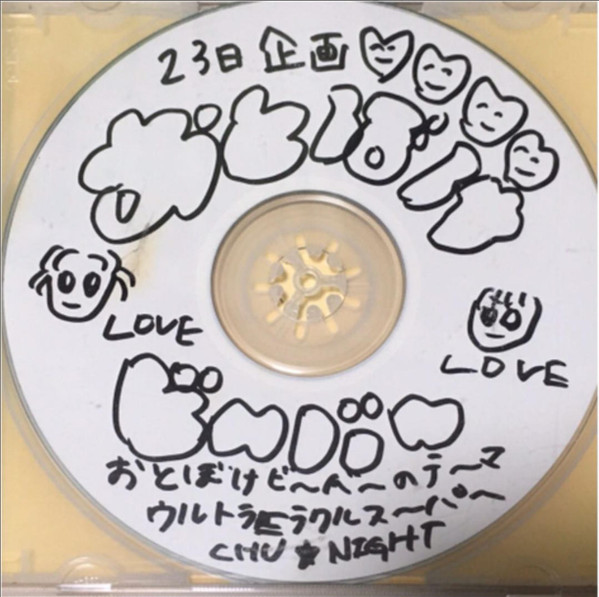 23日 企画
おとぼけ
LOVE
LOVE
ビ〜バ〜
おとぼけビ〜バ〜のテ〜マ
ウルトラミラクルス〜パ〜
CHU★NIGHT